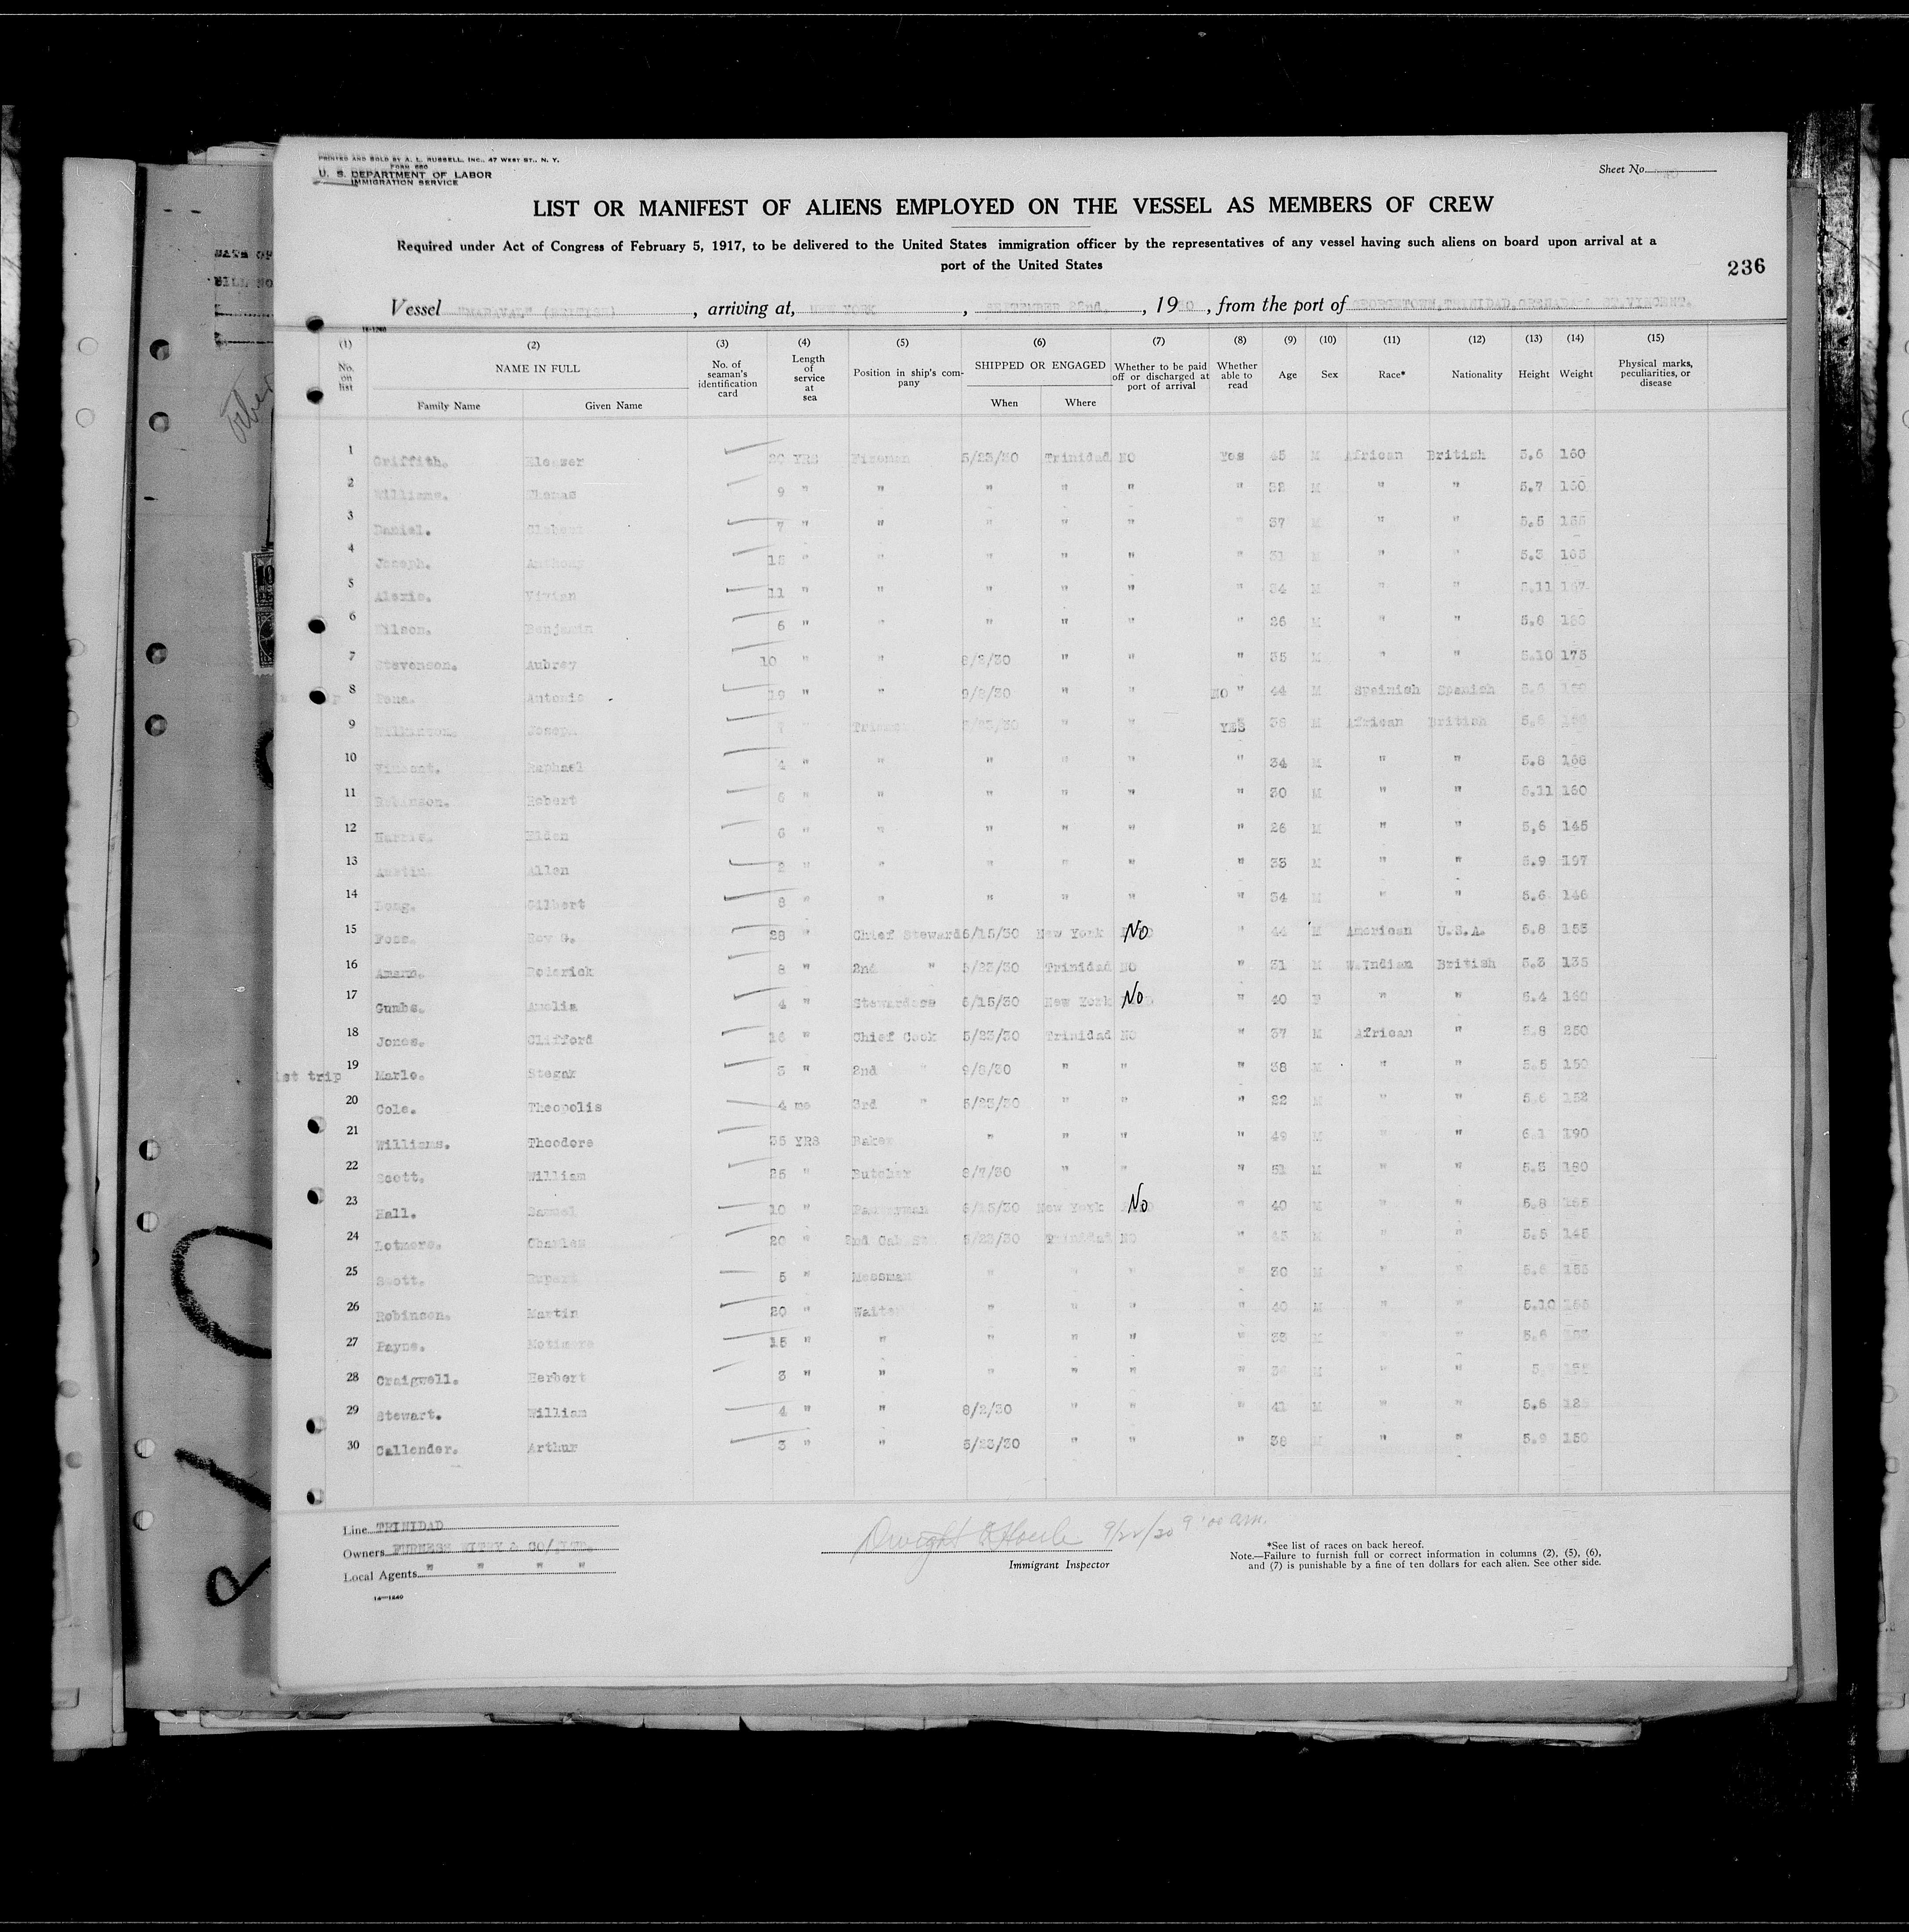 PRINTED AND SOLD BY A. L. RUSSELL, INC., 47 WEST ST., N. Y.
FORM 680
U. S. DEPARTMENT OF LABOR
IMMIGRATION SERVICE
Sheet No.
LIST OR MANIFEST OF ALIENS EMPLOYED ON THE VESSEL AS MEMBERS OF CREW
Required under Act of Congress of February 5, 1917, to be delivered to the United States immigration officer by the representatives of any vessel having such aliens on board upon arrival at a
port of the United States
236
Vessel "MARAVAL" (BRITISH), arriving at, NEW YORK, SEPTEMBER 22nd., 1930, from the port of GEORGETOWN, TRINIDAD, GRENADA & ST VINCENT.
14-1240
(1) (2) (3) (4) (5) (6) (7) (8) (9) (10) (11) (12) (13) (14) (15)
No. on list NAME IN FULL Family Name Given Name No. of seaman's identification card Length of service at sea Position in ship's company SHIPPED OR ENGAGED When Where Whether to be paid off or discharged at port of arrival Whether able to read Age Sex Race* Nationality Height Weight Physical marks, peculiarities, or disease
1 Griffith. 20 YRS Fireman 5/23/30 Trinidad NO Yes 45 M African British 5.6 160
2 Williams. Thomas 9 " " " " " " 32 M " " 5.7
3 Daniel. 7 " " " " " " 37 M " " 5.5
4 Joseph. Anthony 15 " " " " " " 31 M " " 5.3 165
5 Alexis. Vivian 11 " " " " " " 34 M " " 5.11 167
6 Wilson. Benjamin 6 " " " " " " 26 M " " 5.8
7 Stevenson. Aubrey 10 " " 8/2/30 " " " 35 M " " 5.10 175
8 Pena. Antonio 19 " " 9/8/30 " " NO " 44 M Speinish Spanish 5.6
9 Wilkinson. Joseph 7 " Trimmer 5/23/30 " " YES 38 M African British 5.6
10 Vincent. Raphael 4 " " " " " " 34 M " " 5.8 168
11 Robinson. Robert 6 " " " " " " 30 M " " 5.11 160
12 Harris. Elden 6 " " " " " " 26 M " " 5,6 145
13 Austin. Allen 2 " " " " " " 33 M " " 5.9 197
14 Long. Gilbert 8 " " " " " " 34 M " " 5.6 146
15 Foss. Roy G. 28 " Chief Steward 6/15/30 New York No " 44 M American U.S.A. 5.8 153
16 Roderick 8 " 2nd " 5/23/30 Trinidad NO " 31 M W.Indian British 5.3 135
17 Gumbs. Amelia 4 " Stewardess 6/15/30 New York No " 40 F " " 5.4 160
18 Jones. Clifford 16 " Chief Cook 5/23/30 Trinidad NO " 37 M African " 5.8 250
1st trip 19 Marlo. Stegak 3 " 2nd " 9/8/30 " " " 38 M " " 5.5 150
20 Cole. Theopolis 4 mo 3rd " 5/23/30 " " " 22 M " " 5.6 152
21 Williams. Theodore 35 YRS Baker " " " " 49 M " " 6.1 190
22 Scott. William 25 " Butcher 8/7/30 " " " 51 M " " 5.3 180
23 Hall. Samuel 10 " Pantryman 6/15/30 New York No " 40 M " " 5.8 165
24 Lotmore. Charles 20 " 2nd Cab St. 5/23/30 Trinidad NO " 45 M " " 5.5 145
25 Scott. Rupert 5 " Messman " " " " 30 M " " 5.6 155
26 Robinson. Martin 20 " Waiter " " " " 40 M " " 5.10
27 Payne. Motimore 15 " " " " " " 38 M " " 5.6
28 Craigwell. Herbert 3 " " " " " " M " " 5
29 Stewart. William 4 " " 8/2/30 " " " 41 M " " 5.6
30 Callender. Arthur 3 " " 5/23/30 " " " 38 M " " 5.9 150
Line TRINIDAD
Owners FURNESS WITHY & CO/LTD.
Local Agents " " " "
14-1240
9/22/30 9:00 am.
Immigrant Inspector
*See list of races on back hereof.
Note.—Failure to furnish full or correct information in columns (2), (5), (6),
and (7) is punishable by a fine of ten dollars for each alien. See other side.